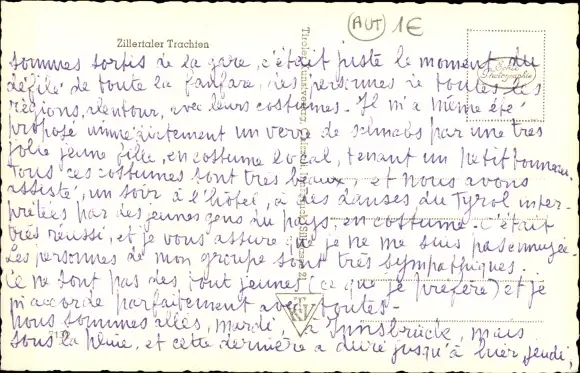 AUT 1€
Zillertaler Trachten
sommes sortis de la gare, c'était juste le moment du
défilé de toute la fanfare, des personnes de toutes les
régions, alentour, avec leurs costumes. Il m'a même été
proposé immédiatement un verre de schnabs par une très
jolie jeune fille, en costume local, tenant un petit tonneau.
Tous ces costumes sont très beaux, et nous avons
assisté, un soir à l'hôtel, à des danses du Tyrol inter-
prétées par des jeunes gens du pays, en costume. C'était
très réussi, et je vous assure que je ne me suis pas ennuyée.
Les personnes de mon groupe sont très sympathiques.
Ce ne sont pas des tout jeunes (ce que je préfère) et je
m'accorde parfaitement avec toutes.
Nous sommes allés, mardi, à Innsbrück, mais
sous la pluie, et cette dernière a duré jusqu'à hier, jeudi,
Tiroler Kunstverlag
Echte Photographie